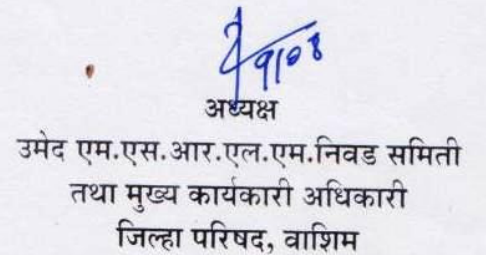 ९/०४
अध्यक्ष
उमेद एम.एस.आर.एल.एम.निवड समिती
तथा मुख्य कार्यकारी अधिकारी
जिल्हा परिषद, वाशिम